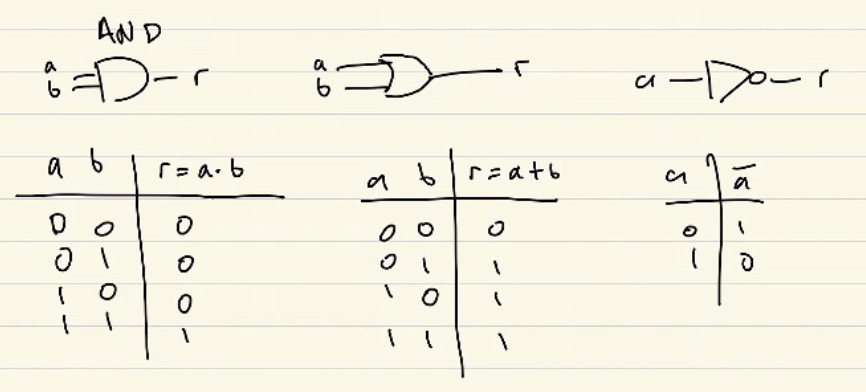 AND
a
b
r
a
b
r
a
r
a b r = a · b
0 0 0
0 1 0
1 0 0
1 1 1
a b r = a + b
0 0 0
0 1 1
1 0 1
1 1 1
a a̅
0 1
1 0